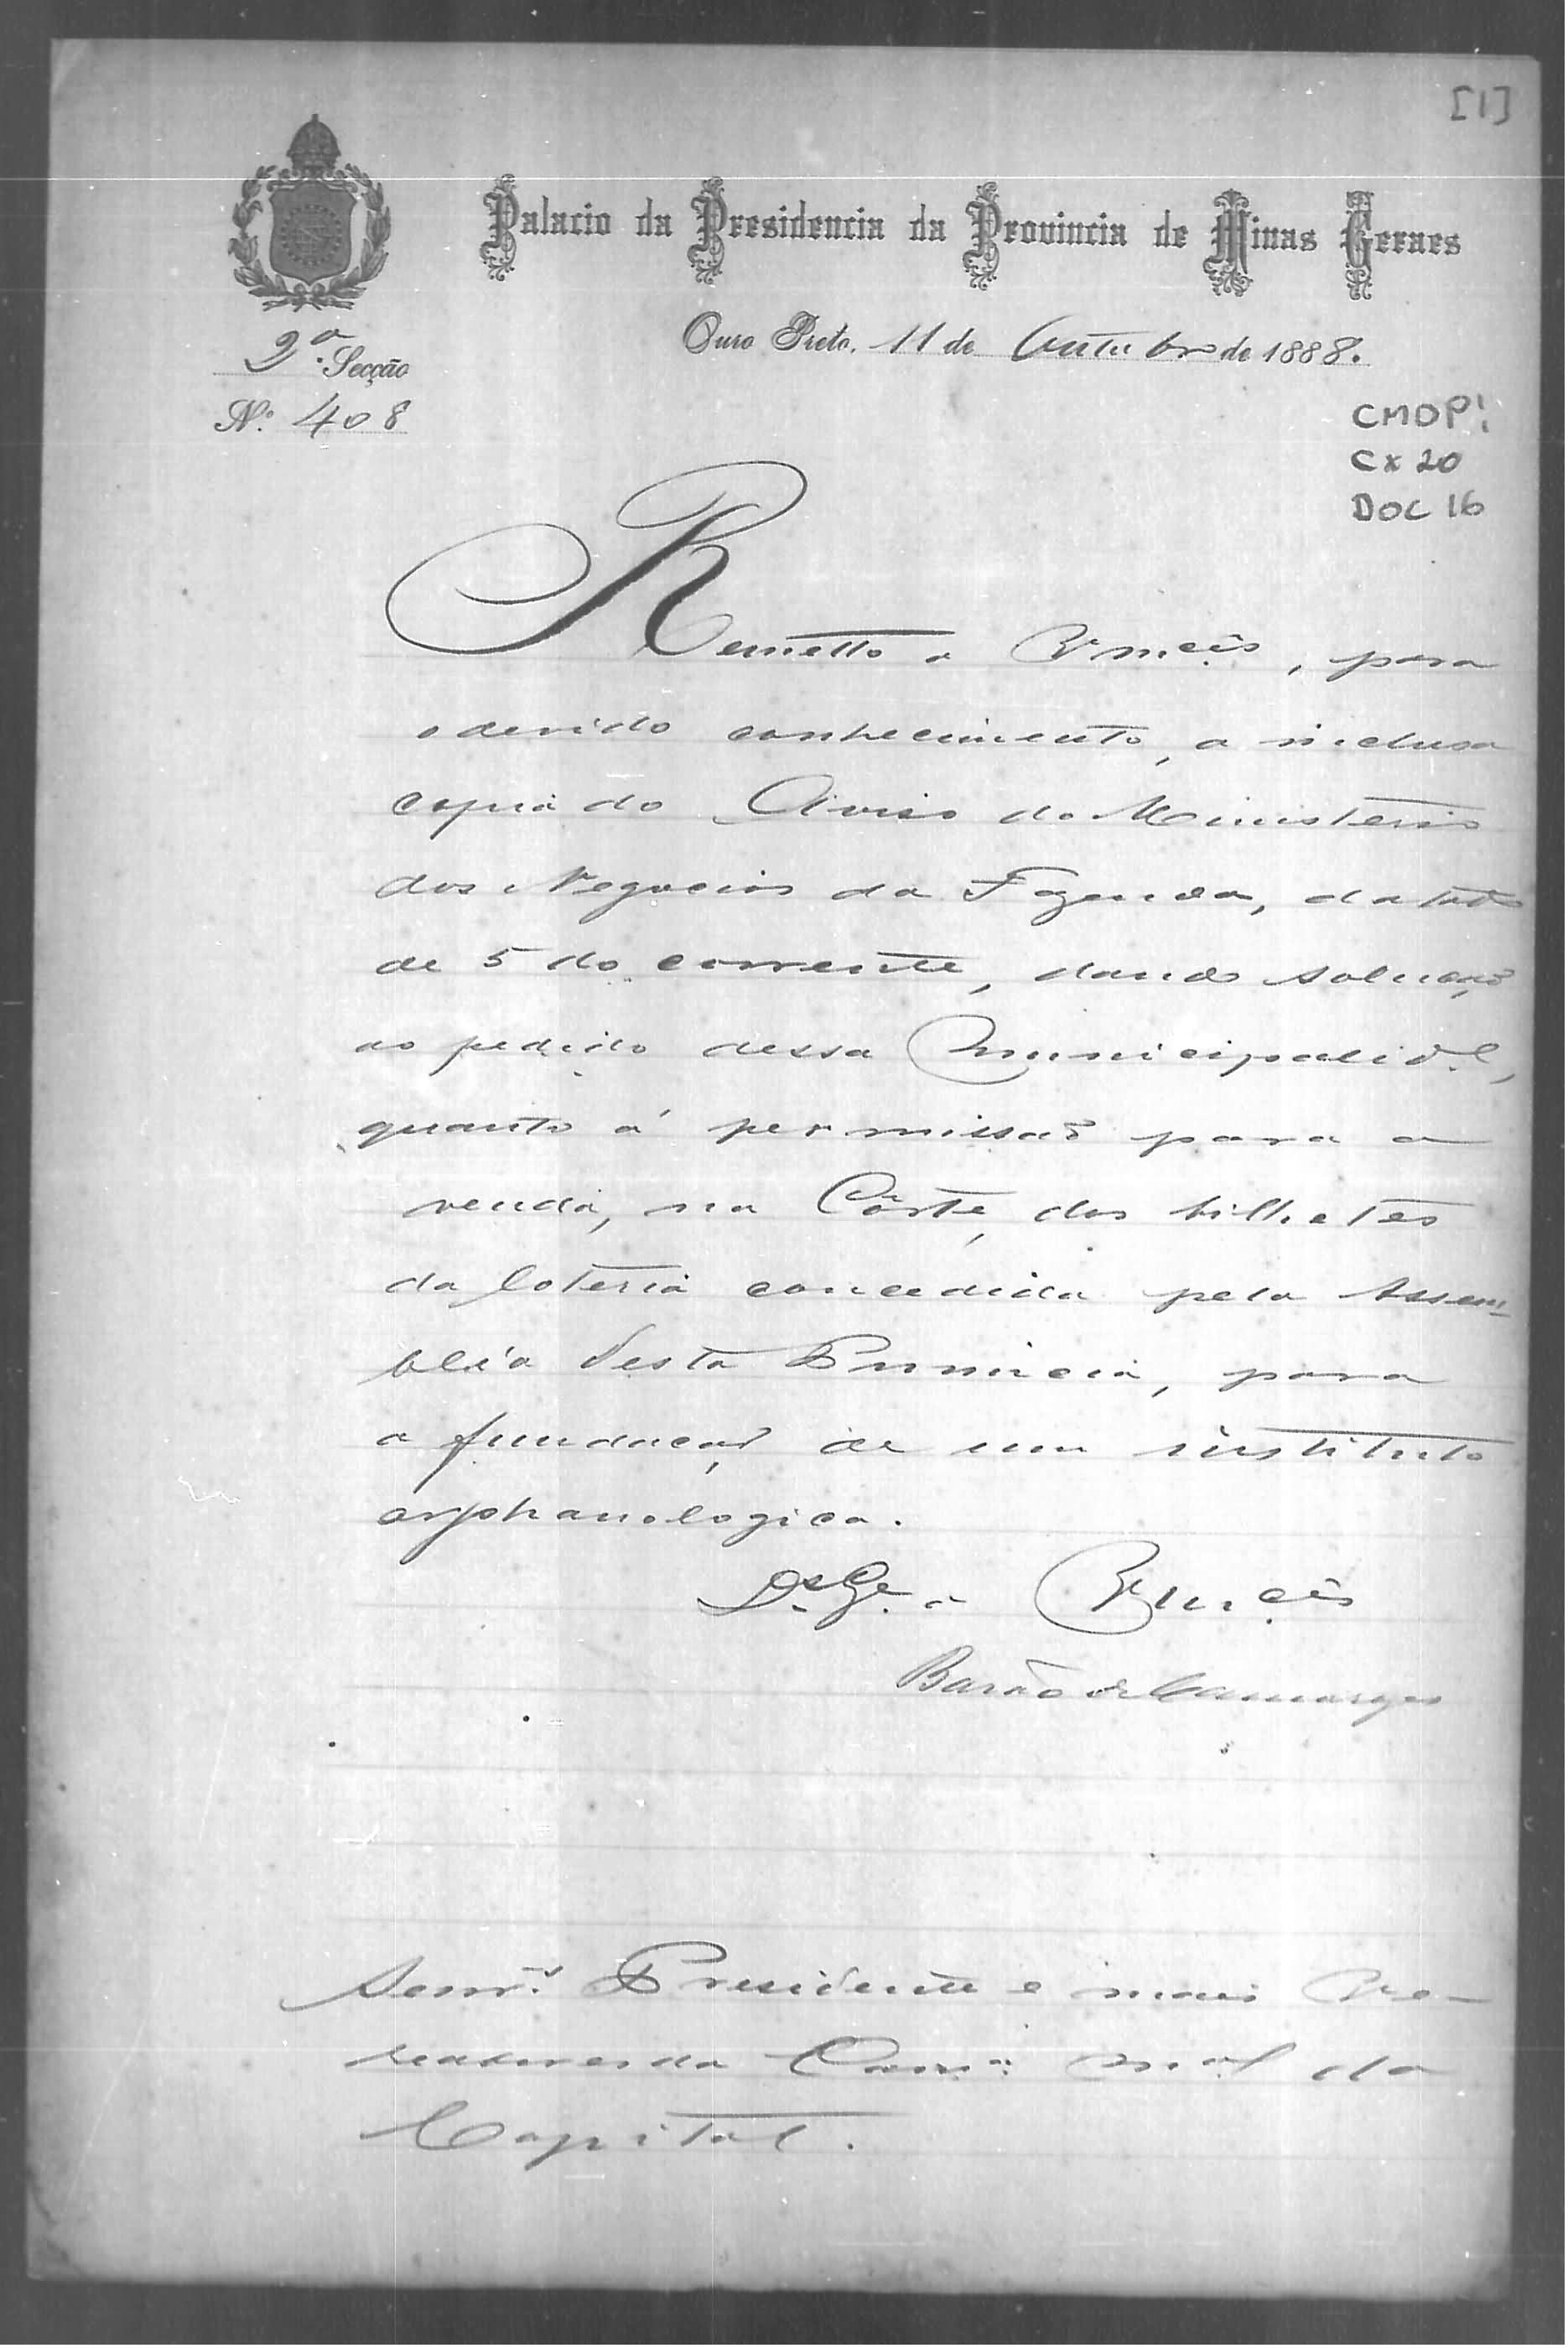 [1]
Palacio da Presidencia da Provincia de Minas Geraes
Ouro Preto, 11 de Outubro de 1888.
2ª Secção
Nº 408
CMOP
CX 20
DOC 16
Remetto a Vmcês, para
o devido conhecimento, a inclusa
copia do Aviso do Ministerio
dos Negocios da Fazenda, datado
de 5 do corrente, dando solução
ao pedido dessa Municipalid.e,
quanto á permissão para a
venda, na Côrte, dos bilhetes
da loteria concedida pela Assem-
bléa desta Provincia, para
a fundação de um instituto
orphanologico.
D.s G.e a Vmcês
Barão de Camargos
Senr.s Presidente e mais Ve-
readores da Cam.ª M.al da
Capital.